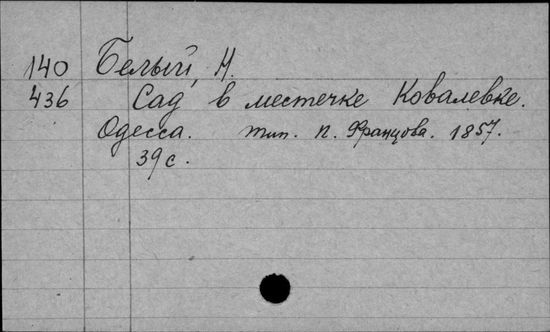 140 Белый, Н.
436 Сад в местечке Ковалевке.
Одесса. тип. П. Францова. 1857.
39 с.